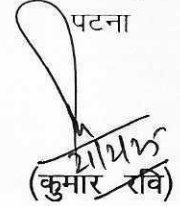 पटना
(कुमार रवि)